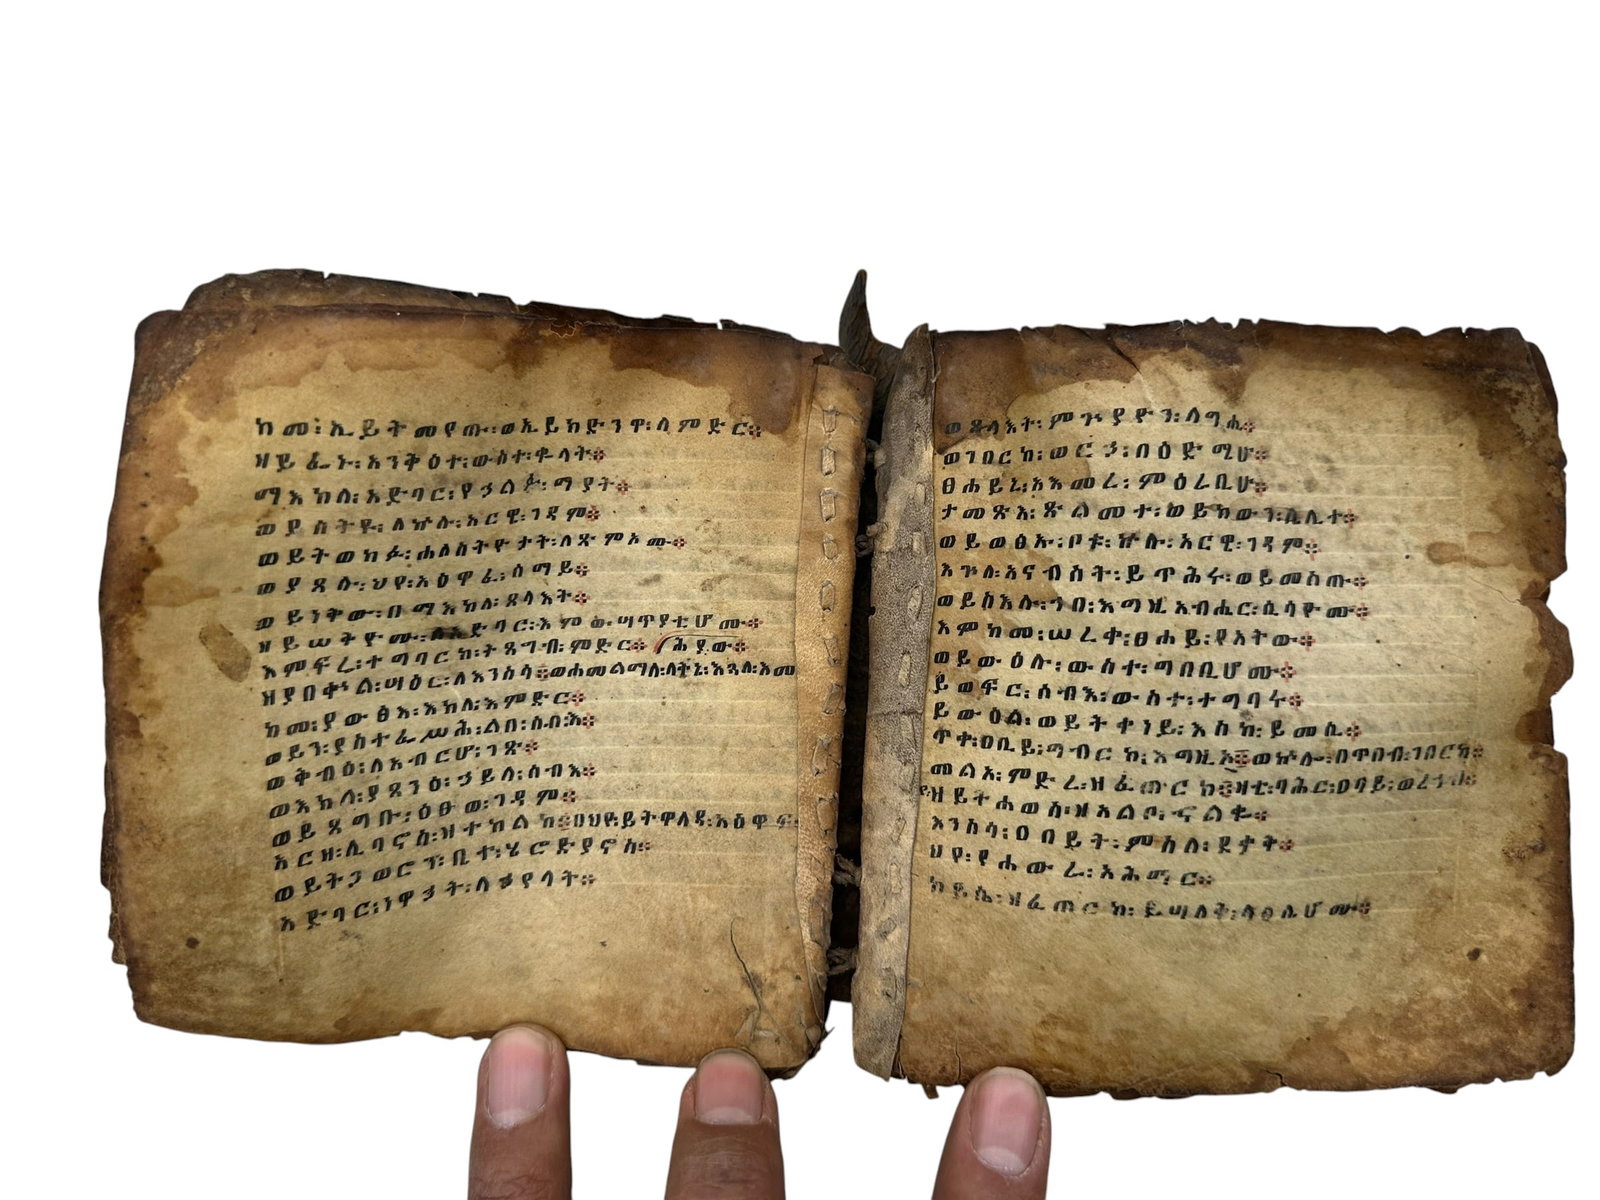 ከመ፡ኢይትመየጡ፡ወኢይክድንዋ፡ለምድር።
ዘይፌኑ፡አንቅዕተ፡ውስተ፡ቈላት።
ማእከለ፡አድባር፡የኃልፉ፡ማያት።
ወያሰትዩ፡ለኵሉ፡አርዌ፡ገዳም።
ወይትወከፉ፡ሐለስትዮታት፡ለጽምኦሙ።
ወያጸሉ፡ህየ፡አዕዋፈ፡ሰማይ።
ወይነቅው፡በማእከለ፡ጸላእት።
ዘይሠቅዮሙ፡ለአድባር፡እምውሣጥያቲሆሙ።
እምፍሬ፡ተግባርከ፡ትጸግብ፡ምድር። ሕያው።
ዘያበቍል፡ሣዕር፡ለእንስሳ።ወሐመልማለ፡ለቅኔ፡እጓለ፡እመ
ከመ፡ያውፅእ፡እክለ፡እምድር።
ወይን፡ያስተፌሥሕ፡ልበ፡ሰብእ።
ወቅብዕ፡ለአብርሆ፡ገጽ።
ወእክል፡ያጸንዕ፡ኃይለ፡ሰብእ።
ወይጸግቡ፡ዕፀወ፡ገዳም።
አርዘ፡ሊባኖስ፡ዘተከልከ።በህየ፡ይትዋለዳ፡አዕዋፍ።
ወይትጋወሮን፡ቤተ፡ሄሮድያኖስ።
አድባር፡ነዋኃት፡ለኃየላት።
ወጸላእት፡ምጕያዮን፡ለግሒ።
ወገበርከ፡ወርኃ፡በዕድሜሁ።
ፀሐይኒ፡አእመረ፡ምዕራቢሁ።
ታመጽእ፡ጽልመተ፡ወይከውን፡ሌሊተ።
ወይወፅኡ፡ቦቱ፡ኵሉ፡አርዌ፡ገዳም።
እጕለ፡አናብስት፡ይጥሕሩ፡ወይመስጡ።
ወይስእሉ፡ኀበ፡እግዚአብሔር፡ሲሳዮሙ።
እምከመ፡ሠረቀ፡ፀሐይ፡የአትው።
ወይውዕሉ፡ውስተ፡ግበቢሆሙ።
ይወፍር፡ሰብእ፡ውስተ፡ተግባሩ።
ይውዕል፡ወይትቀነይ፡እስከ፡ይመሲ።
ጥቀ፡ዐቢይ፡ግብርከ፡እግዚኦ።ወኵሎ፡በጥበብ፡ገበርከ።
መልአ፡ምድረ፡ዘፈጠርከ።ዛቲ፡ባሕር፡ዐባይ፡
ዘይትሐወስ፡ዘአልቦ፡ኍልቈ።
እንስሳ፡ዐበይት፡ምስለ፡ደቃቅ።
ህየ፡የሐውራ፡አሕማር።
ከይሴ፡ዘፈጠርከ፡ይሣለቅ፡ላዕሌሆሙ።